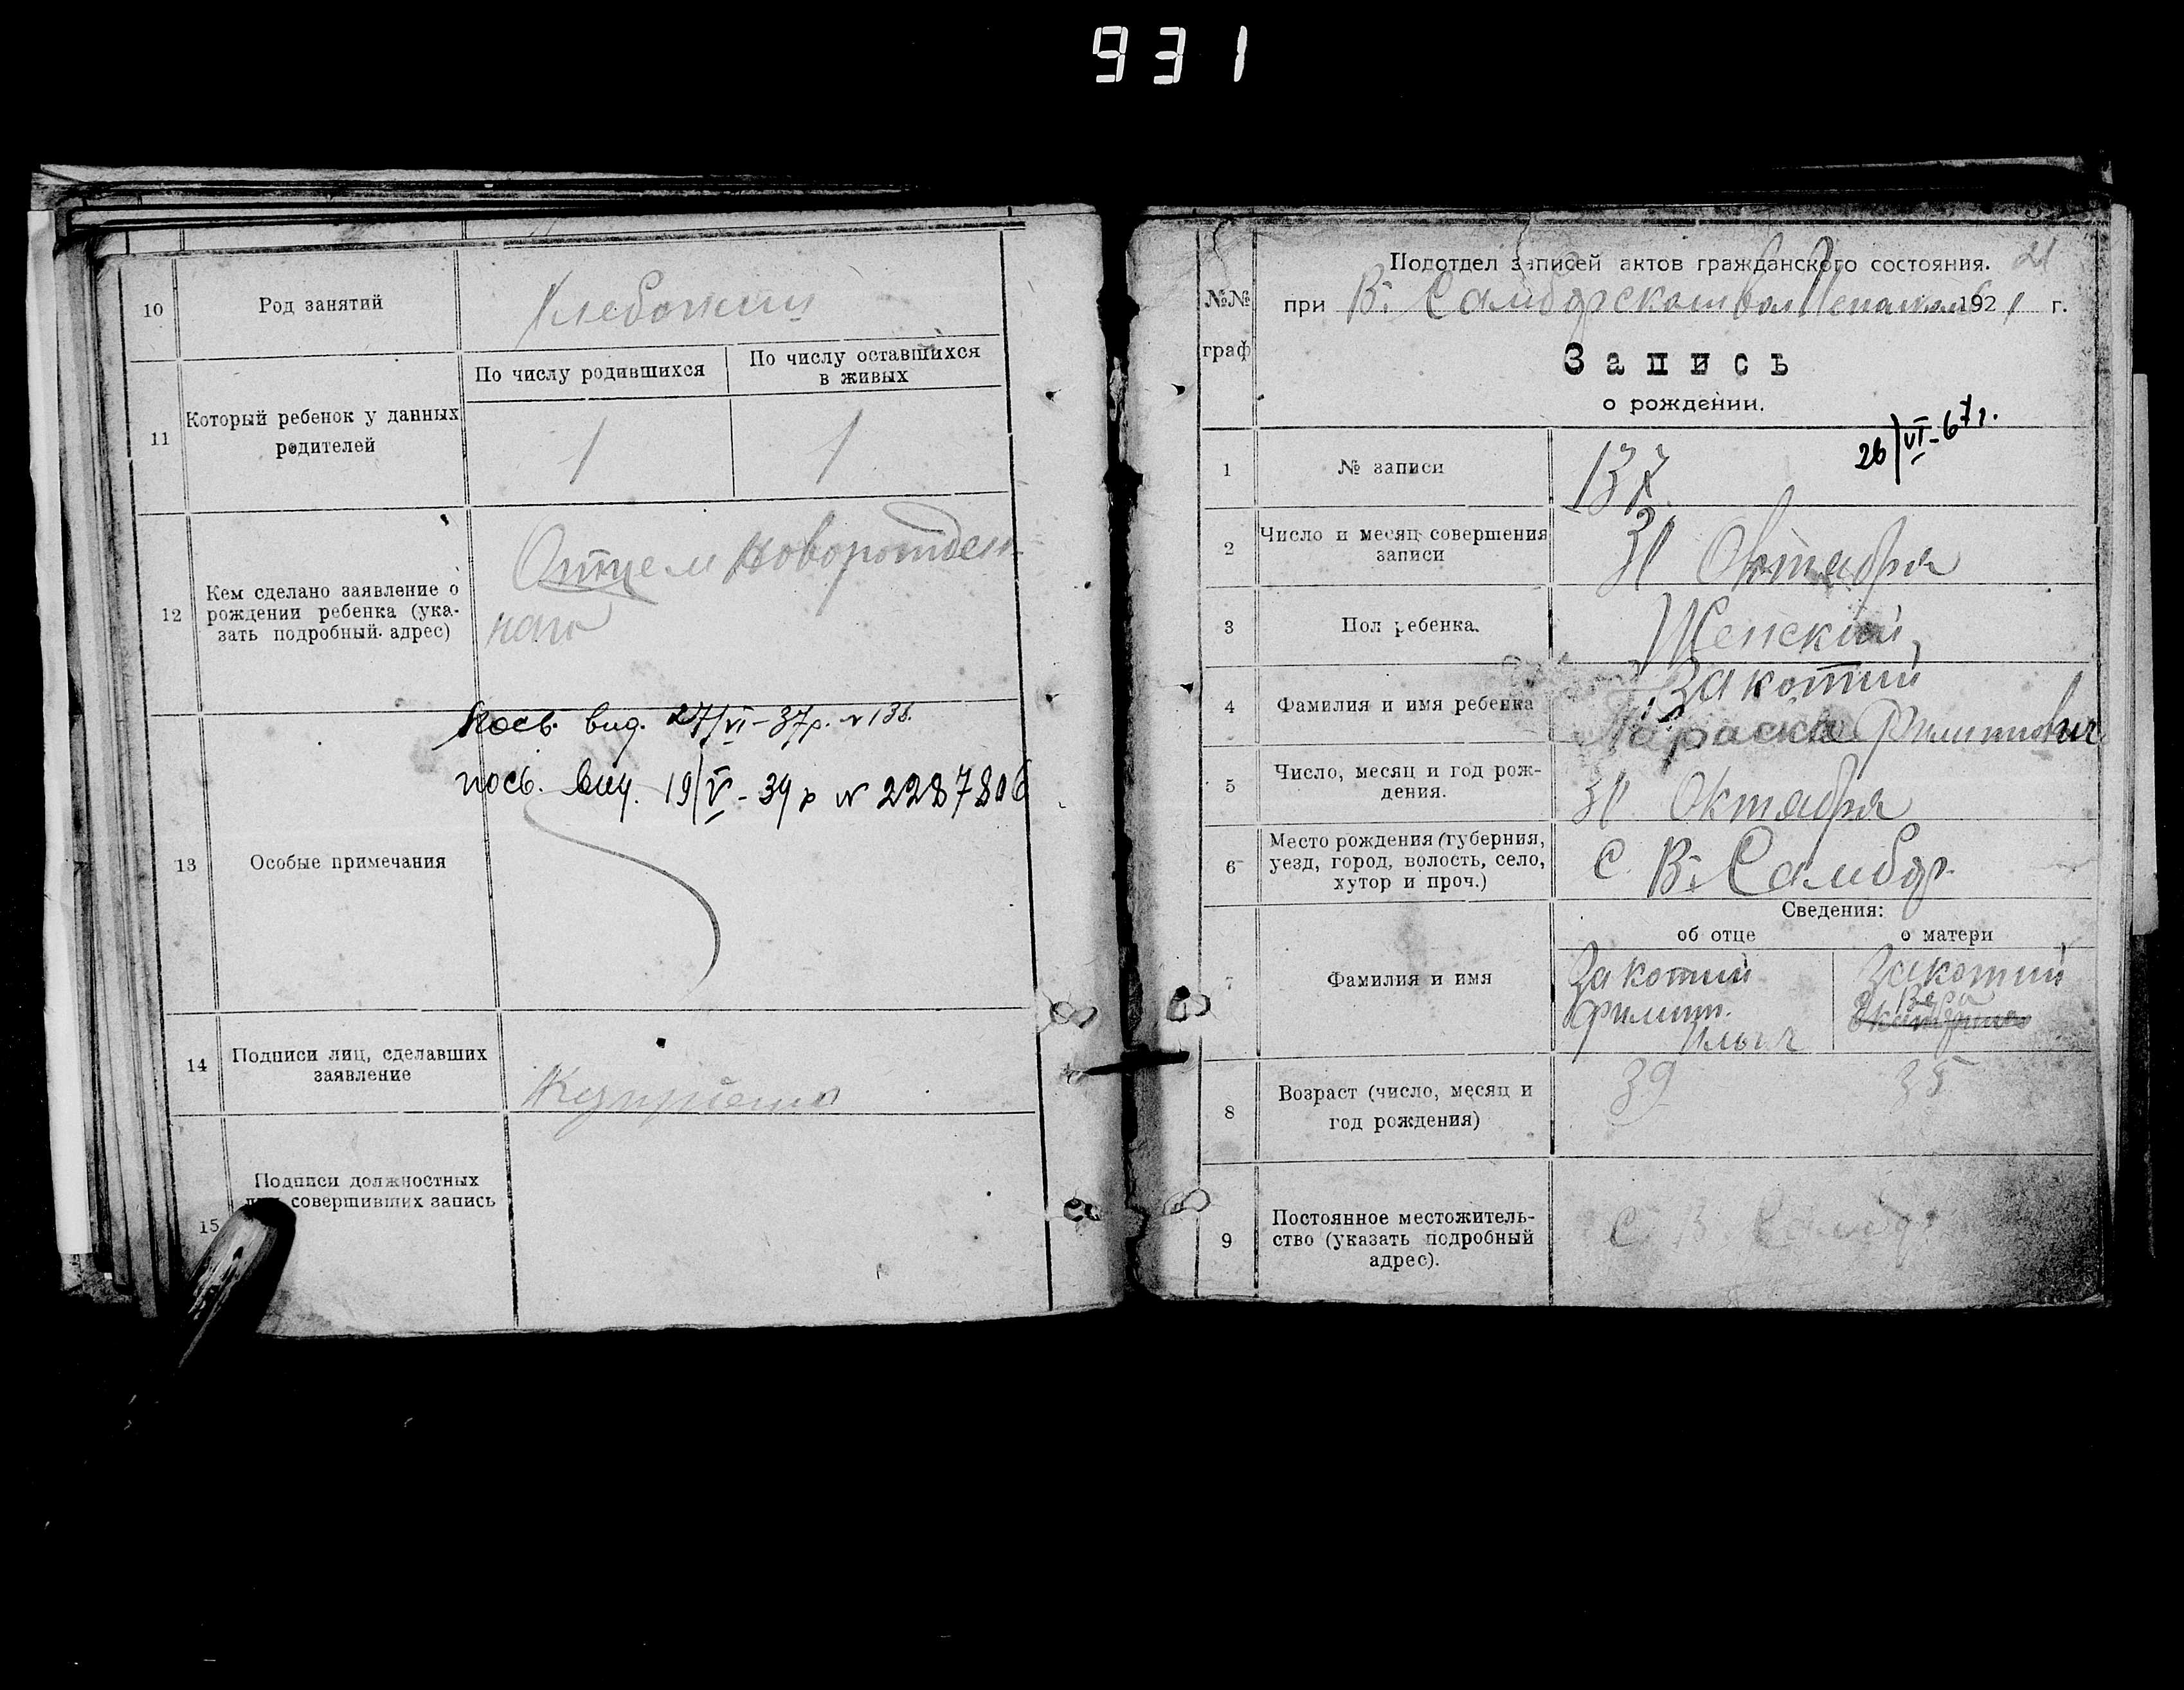 931
10
Род занятий
11
Который ребенок у данных
родителей
По числу родившихся
По числу оставшихся
в живых
1
1
12
Кем сделано заявление о
рождении ребенка (ука-
зать подробный адрес)
Отцем новорожден
наго
13
Особые примечания
посв. вид. 27/VI-37р. N 138.
посв. вид. 19/V-39 р N 2287806
14
Подписи лиц, сделавших
заявление
15
Подписи должностных
лиц совершивших запись
№№
граф
Подотдел записей актов гражданского состояния.
21
при В. Самборском вол 1921 г.
Запись
о рождении.
26/VI-67г.
1
№ записи
137
2
Число и месяц совершения
записи
31 Октября
3
Пол ребенка.
Женский
4
Фамилия и имя ребенка
Закотий
Параска Филиппович
5
Число, месяц и год рож-
дения.
31 Октября
6
Место рождения (губерния,
уезд, город, волость, село,
хутор и проч.)
с. В. Самбор
Сведения:
об отце
о матери
7
Фамилия и имя
Закотий
Филипп.
Ильич
Закотий
8
Возраст (число, месяц и
год рождения)
39
35
9
Постоянное местожитель-
ство (указать подробный
адрес).
С В Самбор